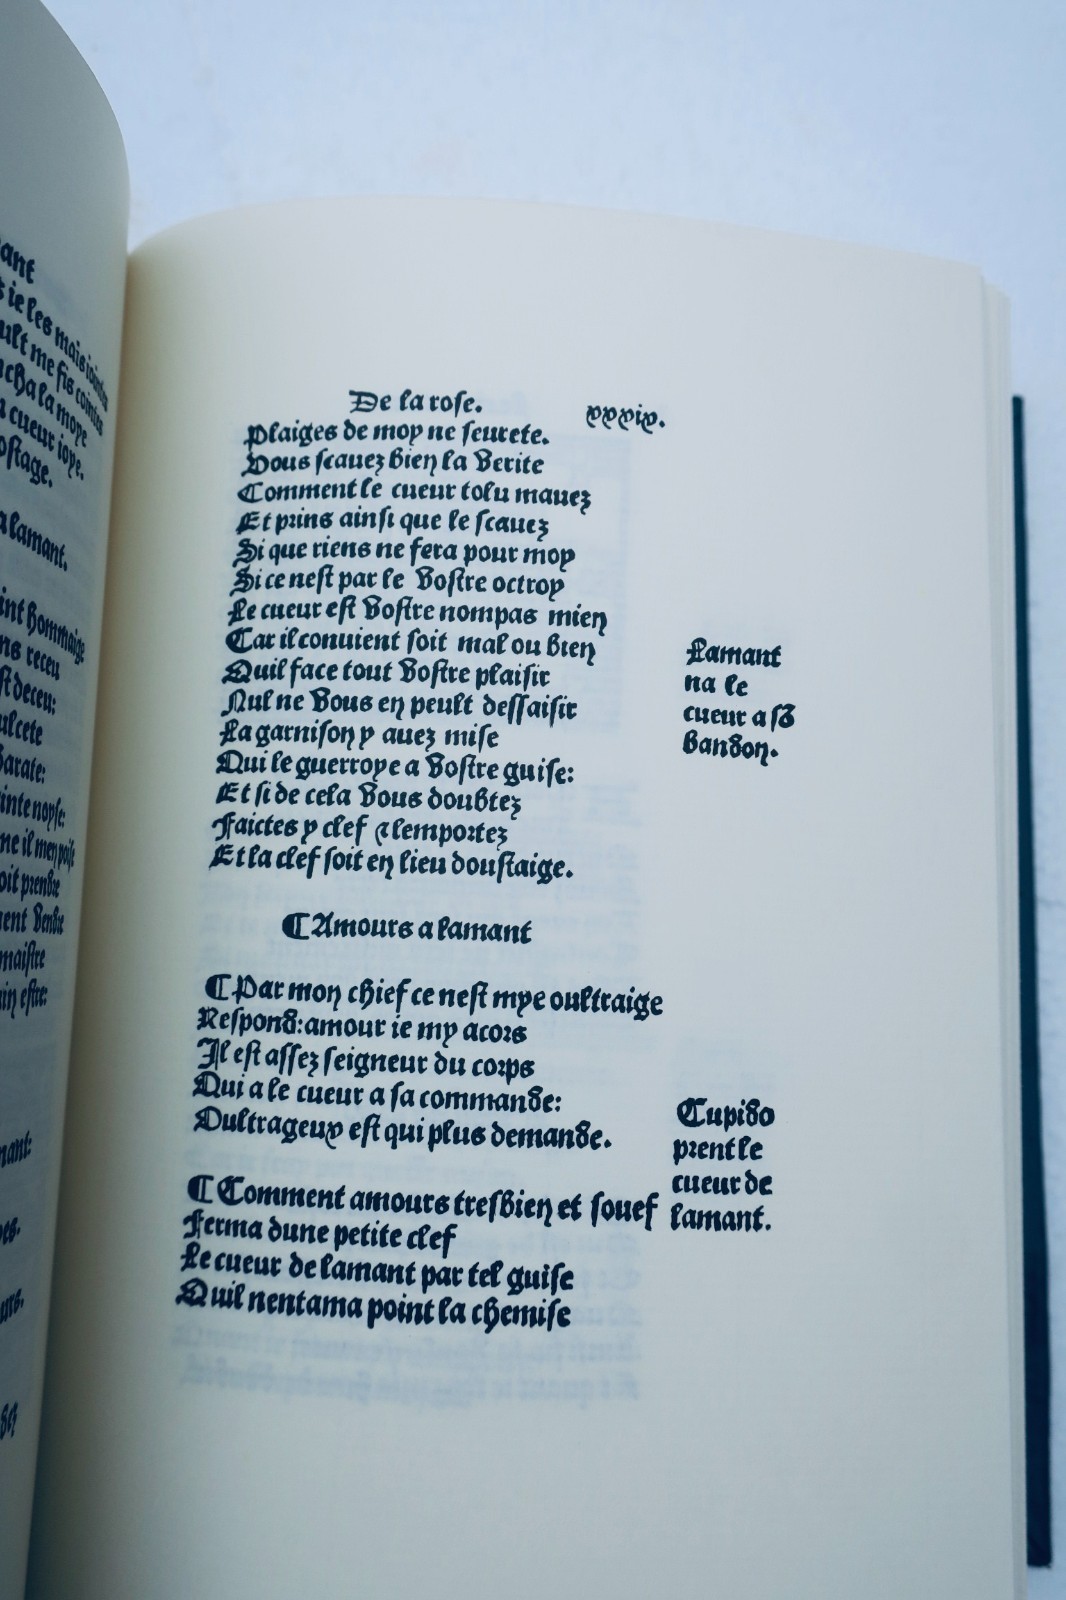 ant
ie les mais iointes
ult me fis cointes
ucha la moye
cueur ioye.
ostage.
a lamant.
int hommaige
ns receu
st deceu:
ulcete
Barate:
inte noyse:
me il men poise
oit prendre
ent Vendre
maistre
in estre:
mant:
es.
urs.
De la rose.
xxxix.
Plaiges de moy ne seurete.
Vous scauez bien la Verite
Comment le cueur tolu mauez
Et prins ainsi que le scauez
Si que riens ne fera pour moy
Si ce nest par le Vostre octroy
Le cueur est Vostre nompas mien
Car il conuient soit mal ou bien
Quil face tout Vostre plaisir
Nul ne Vous en peult dessaisir
La garnison y auez mise
Qui le guerroye a Vostre guise:
Et si de cela Vous doubtez
Faictes y clef ⁊ lemportez
Et la clef soit en lieu doustaige.
Lamant
na le
cueur a sō
bandon.
¶Amours a lamant
¶Par mon chief ce nest mye oultraige
Respond:amour ie my acors
Il est assez seigneur du corps
Qui a le cueur a sa commande:
Oultrageux est qui plus demande.
¶Comment amours tresbien et souef
Ferma dune petite clef
Le cueur de lamant par tel guise
Quil nentama point la chemise
Cupido
prent le
cueur de
lamant.